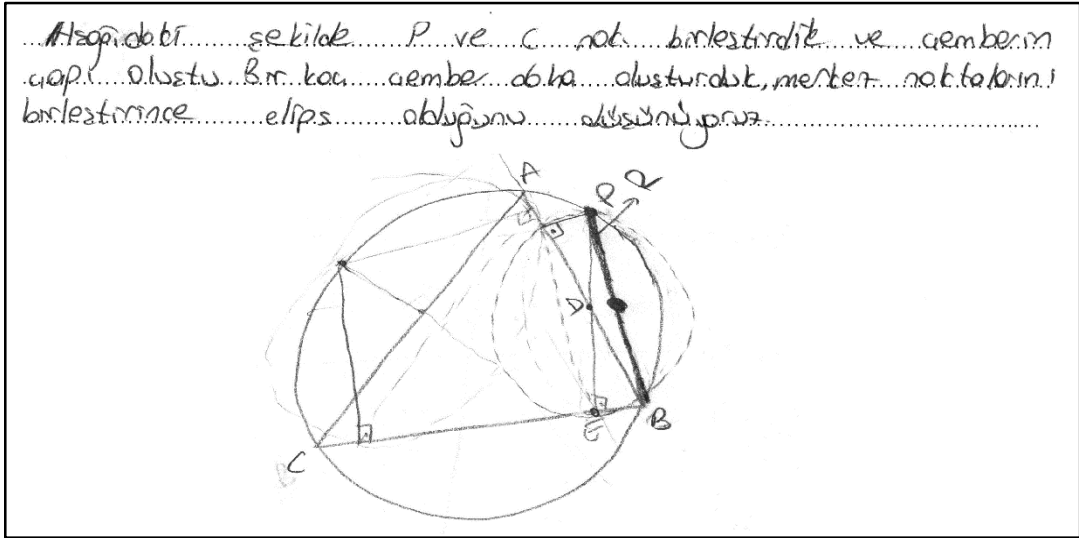 Aşağıdaki şekilde P ve C nok. birleştirdik ve çemberin
çapı oluştu. Bir kaç çember daha oluşturduk, merkez noktalarını
birleştirince elips olduğunu düşünüyoruz.
A
P
R
D
E
B
C